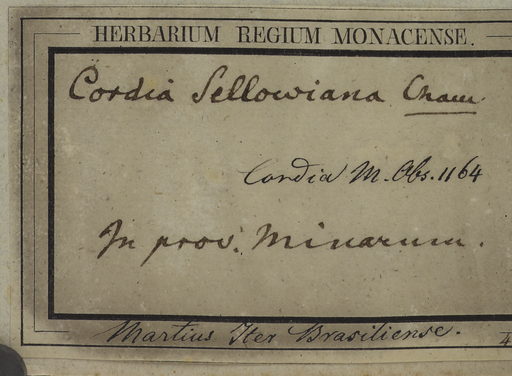 HERBARIUM REGIUM MONACENSE.
Cordia Sellowiana Cham
Cordia M. Obs. 1164
In prov. Minarum.
Martius Iter Brasiliense.
4